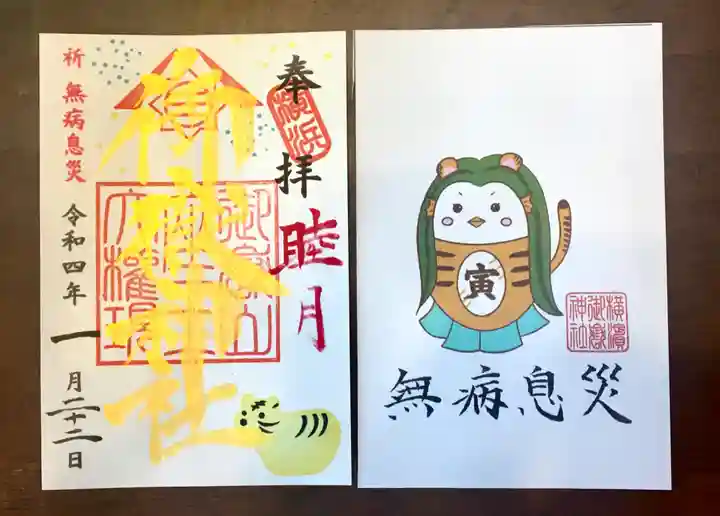 奉拝
横浜
睦月
御嶽神社
御嶽山
大権現
祈 無病息災
令和四年 一月二十二日
寅
横濱
御嶽
神社
無病息災